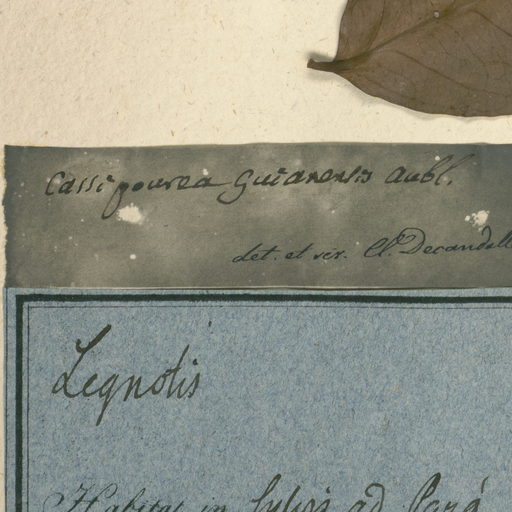 Cassipourea guianensis aubl.
det. et scr. Cl. Decandoll
Legnotis
Habitat in Sylvis ad Pará